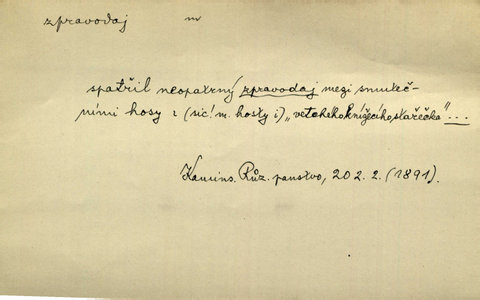 zpravodaj m
spatřil neopatrný zpravodaj mezi smuteč-
ními hosy i (sic! m. hosty i) „vetchého knížecího stařečka"...
Kamins. Růz. panstvo, 202.2. (1891).